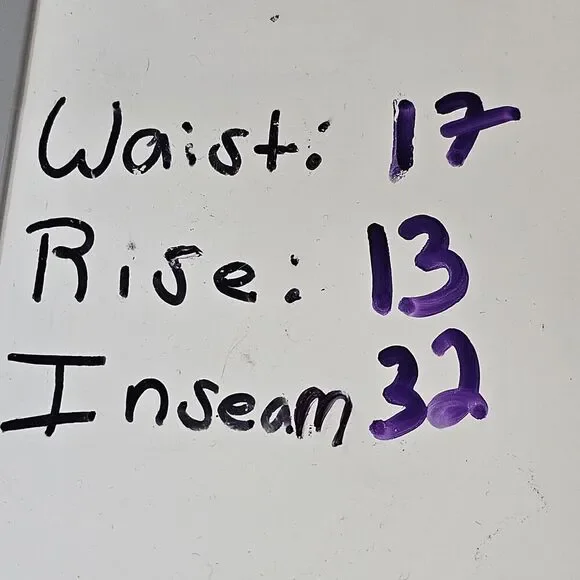 Waist: 17
Rise: 13
Inseam 32